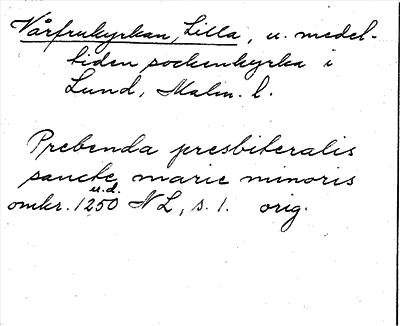 Vårfrukyrkan, Lilla, u. medel-
tiden sockenkyrka i
Lund, Malm. l.
Prebenda presbiteralis
sancte marie minoris
u.d.
omkr. 1250 NL, s. 1. orig.